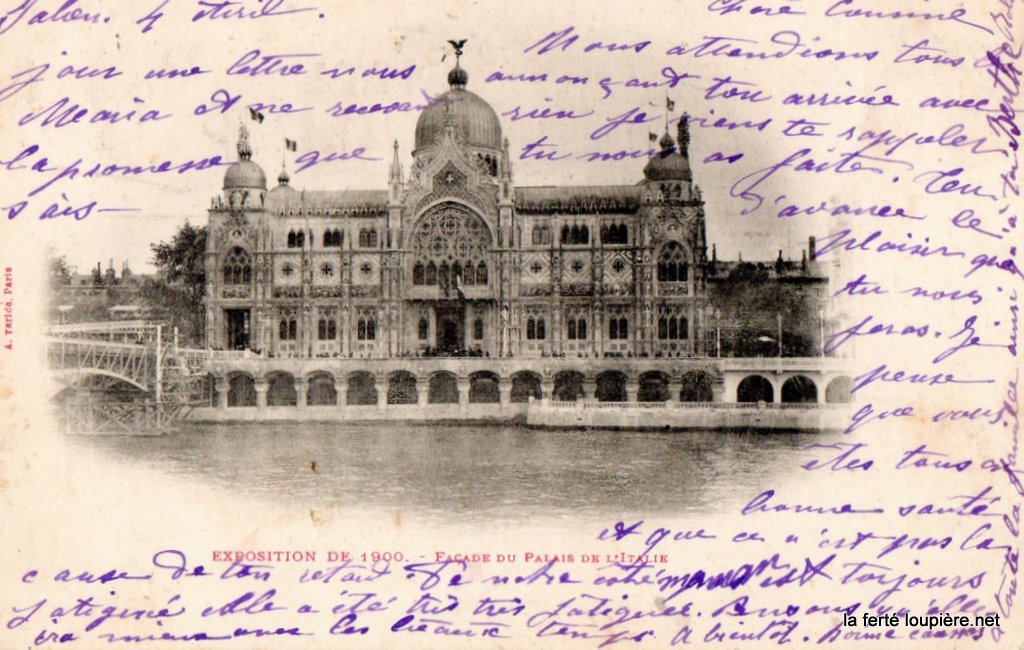 Salon. 4 Avril.
Chère Cousine
Nous attendions tous les
jour une lettre nous annonçant ton arrivée avec
Maria et ne recevant rien je viens te rappeler
la promesse que tu nous as faite. Tu
sais
d'avance le
plaisir que
tu nous
feras. Je
pense
que vous
êtes tous en
bonne santé
et que ce n'est pas la
cause de ton retard. De notre côté maman est toujours
fatigué elle a été très très fatiguée. Pensons qu'elle
ira mieux avec les beaux temps. A bientôt. Bonne caresses
à toute la famille ainsi qu'à toi Berthe
A. Taride, Paris
EXPOSITION DE 1900. - FAÇADE DU PALAIS DE L'ITALIE
la ferté loupière.net